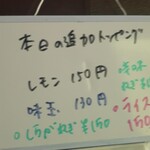 本日の追加トッピング
レモン 150円
味玉 130円
○しらがねぎ ¥150
○ライス
150